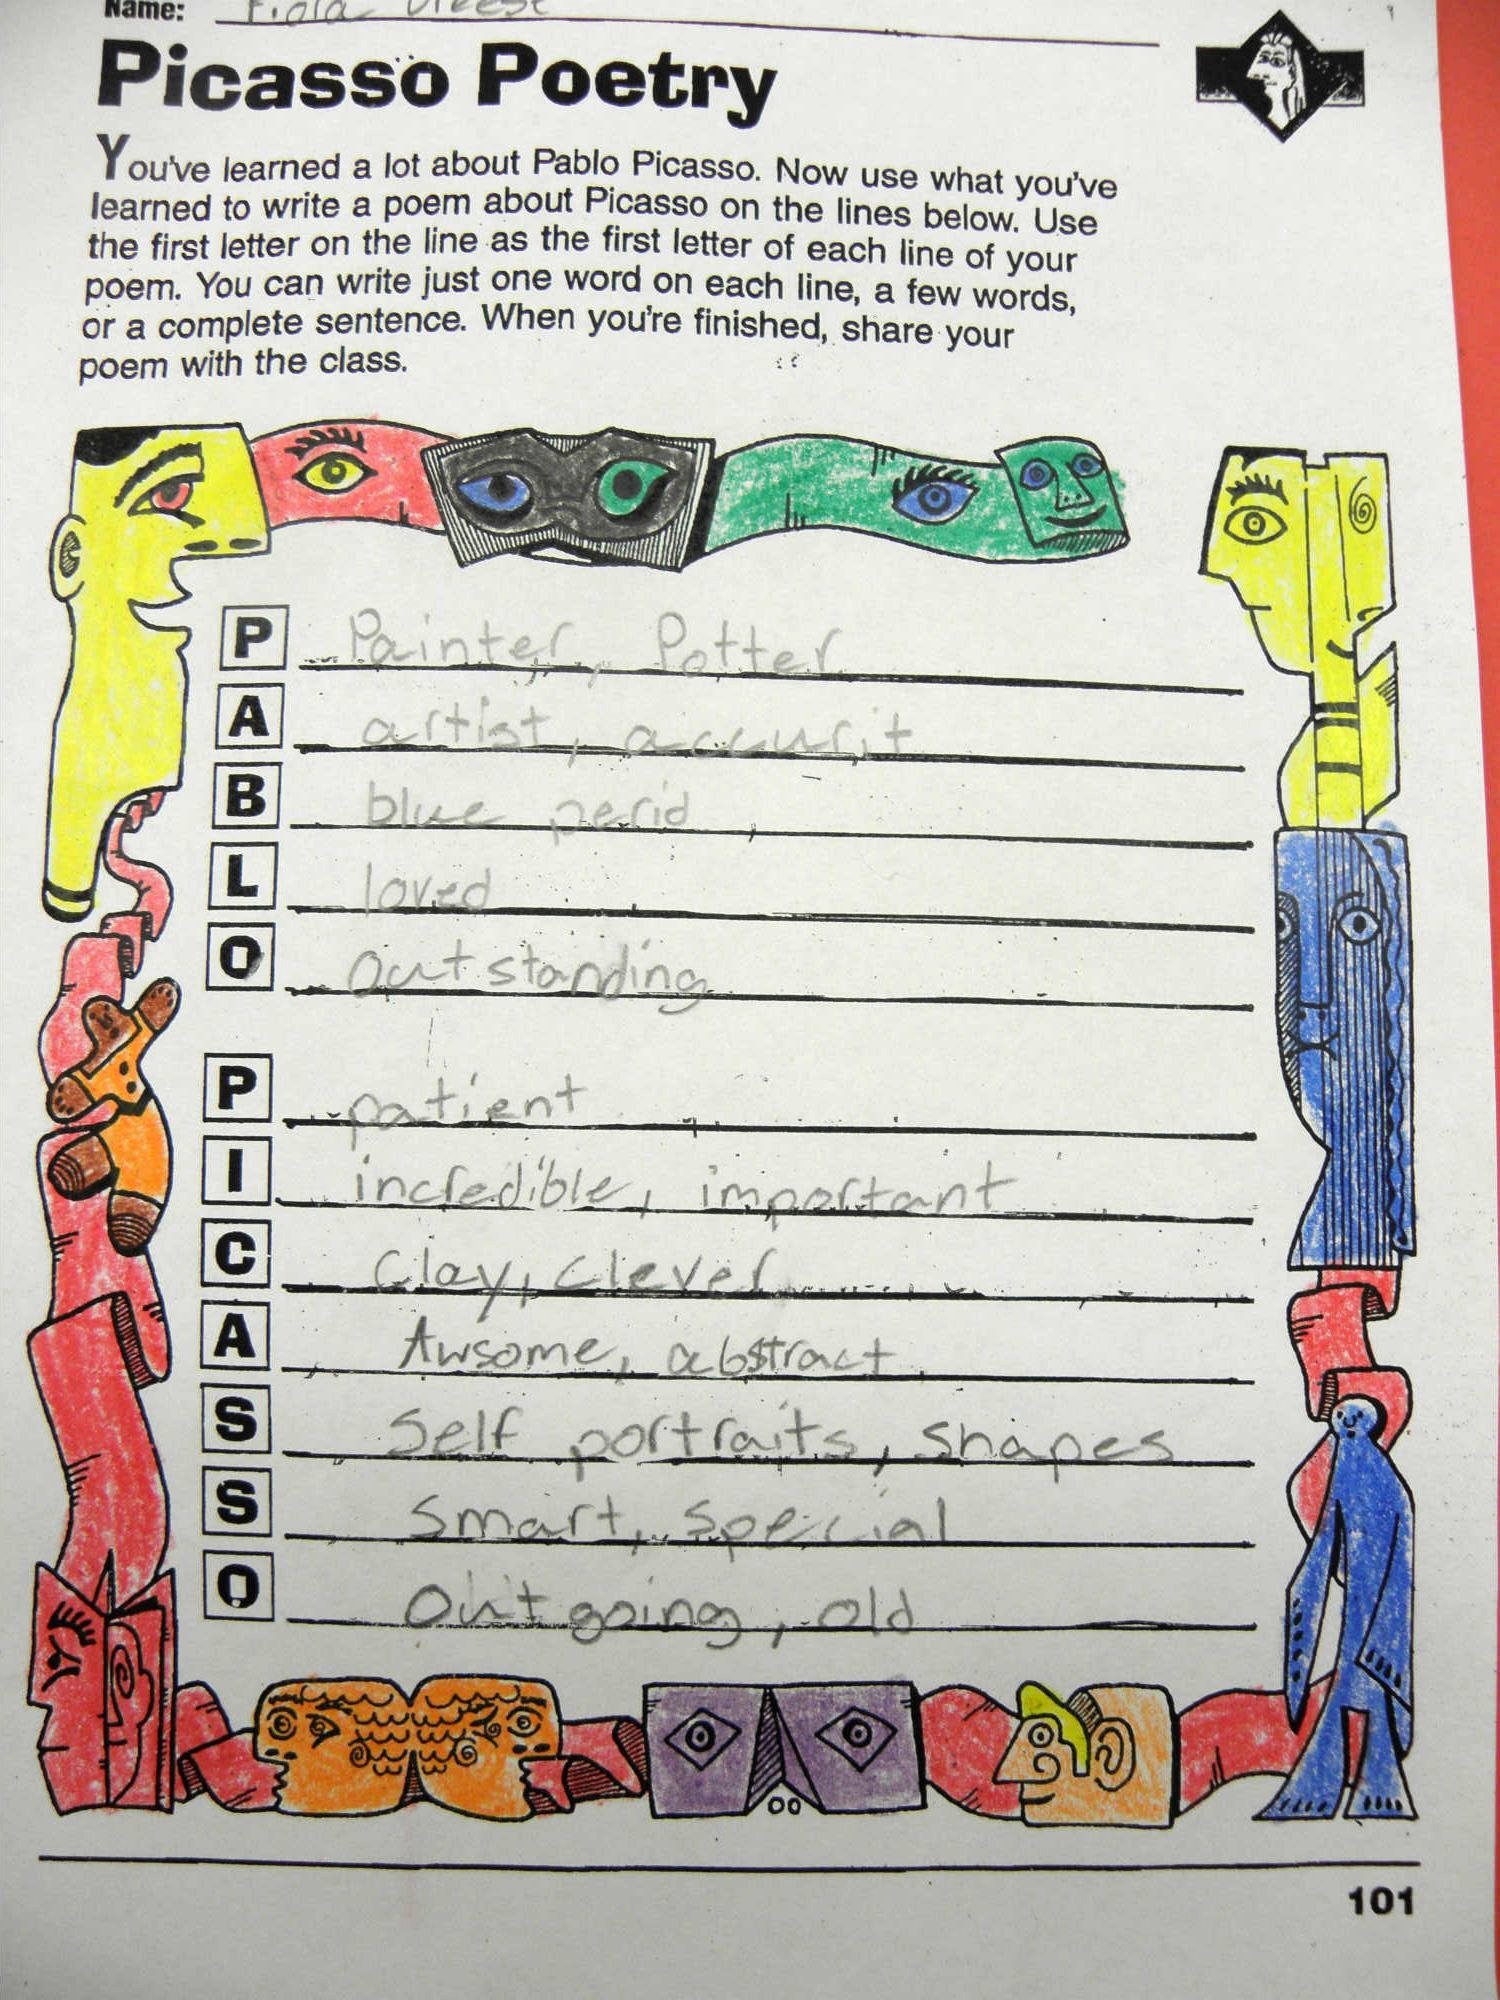 Name:
Picasso Poetry
You've learned a lot about Pablo Picasso. Now use what you've
learned to write a poem about Picasso on the lines below. Use
the first letter on the line as the first letter of each line of your
poem. You can write just one word on each line, a few words,
or a complete sentence. When you're finished, share your
poem with the class.
P Painter, Potter
A artist, accurit
B blue perid
L loved
O outstanding
P patient
I incredible, important
C Clay, Clever
A Awsome, abstract
S Self portraits, shapes
S Smart, special
O Outgoing, old
101